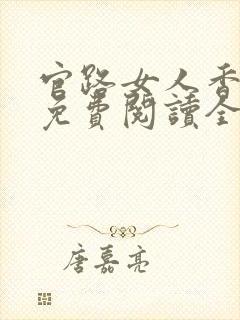 官路女人香
免費閱讀全
唐嘉亮